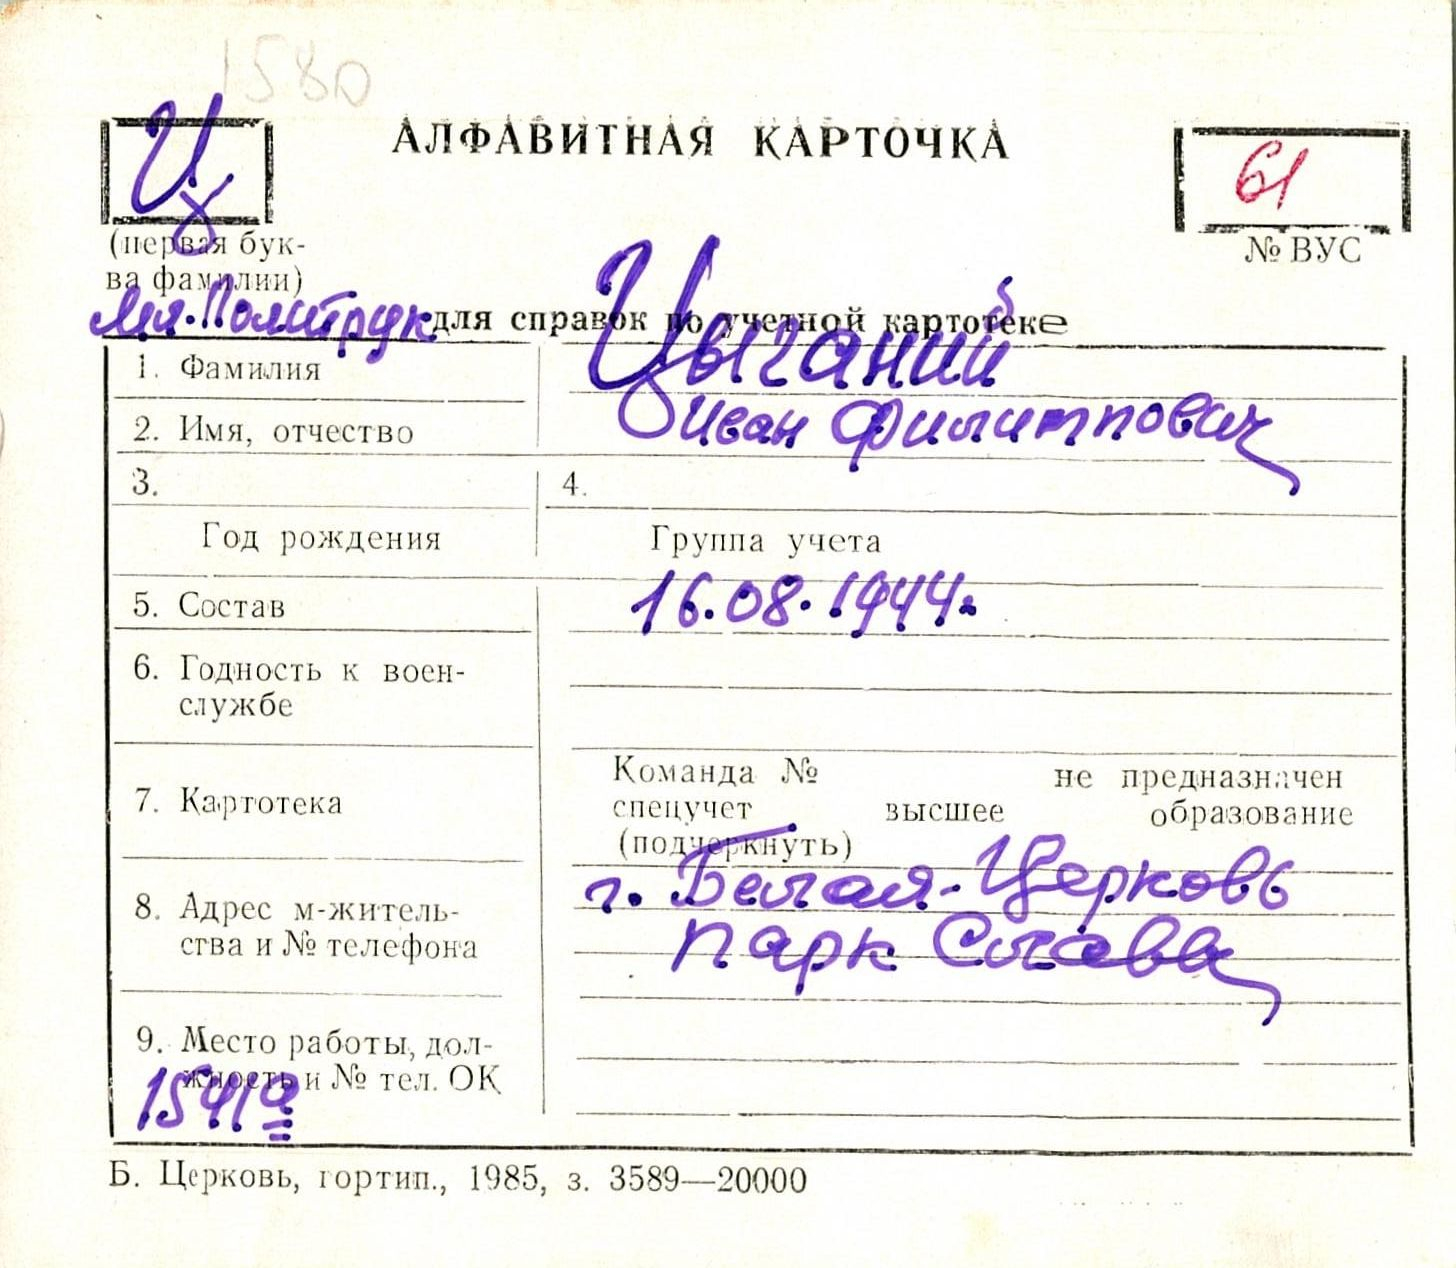 1580
Ц
АЛФАВИТНАЯ КАРТОЧКА
61
(первая бук-
ва фамилии)
№ ВУС
Мл. Политрук
для справок по учетной картотеке
1. Фамилия
Цыганий
2. Имя, отчество
Иван Филиппович
3.
4.
Год рождения
Группа учета
5. Состав
16.08.1944г.
6. Годность к воен-
службе
7. Картотека
Команда № не предназначен
спецучет высшее образование
(подчеркнуть)
8. Адрес м-житель-
ства и № телефона
г. Белая-Церковь
парк Славы
9. Место работы, дол-
жность и № тел. ОК
Б. Церковь, гортип., 1985, з. 3589—20000